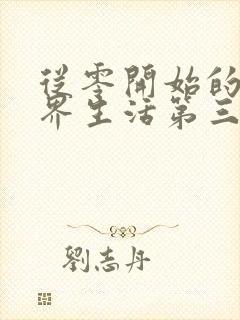 從零開始的
界生活第三
劉志丹